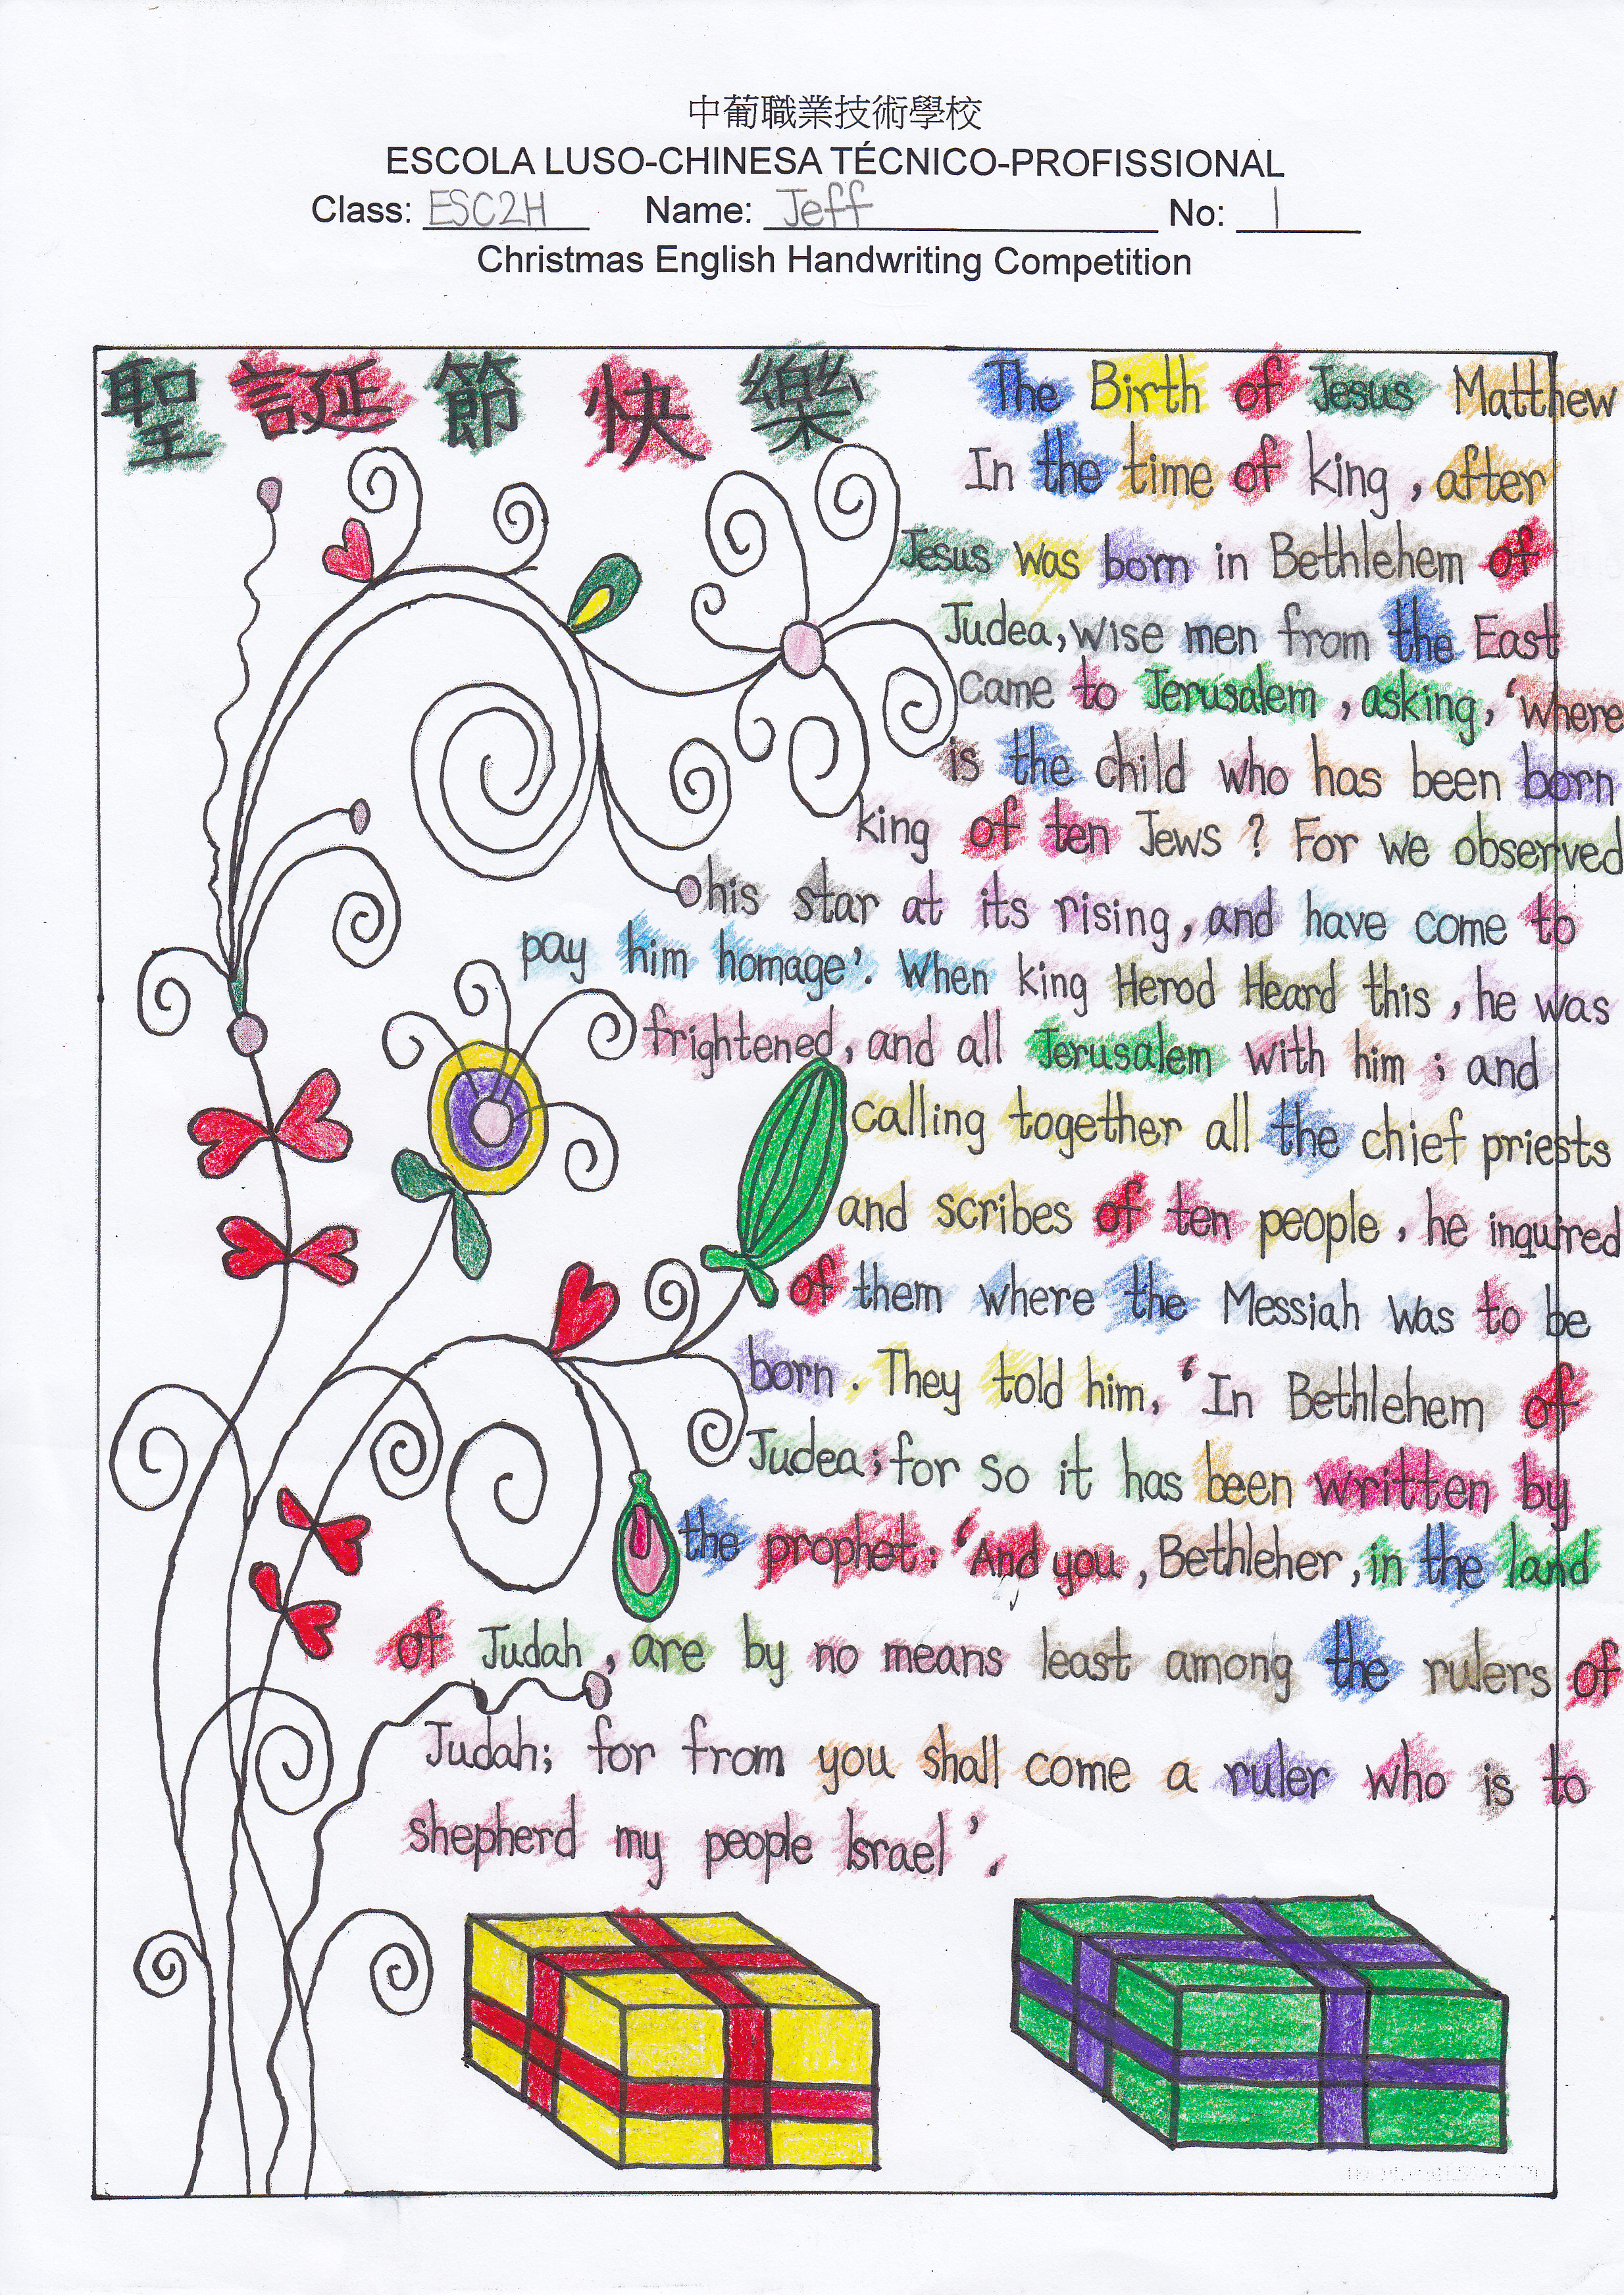 中葡職業技術學校
ESCOLA LUSO-CHINESA TÉCNICO-PROFISSIONAL
Class: ESC2H Name: Jeff No: 1
Christmas English Handwriting Competition
聖誕節快樂
The Birth of Jesus Matthew
In the time of king , after
Jesus was born in Bethlehem of
Judea, wise men from the East
Came to Jerusalem , asking, 'where
is the child who has been born
king of ten Jews ? For we observed
his star at its rising, and have come to
pay him homage'. When king Herod Heard this , he was
frightened, and all Jerusalem with him ; and
calling together all the chief priests
and scribes of ten people , he inquired
of them where the Messiah was to be
born . They told him, 'In Bethlehem of
Judea; for so it has been written by
the prophet: 'And you , Bethleher, in the land
of Judah, are by no means least among the rulers of
Judah; for from you shall come a ruler who is to
shepherd my people Israel'.